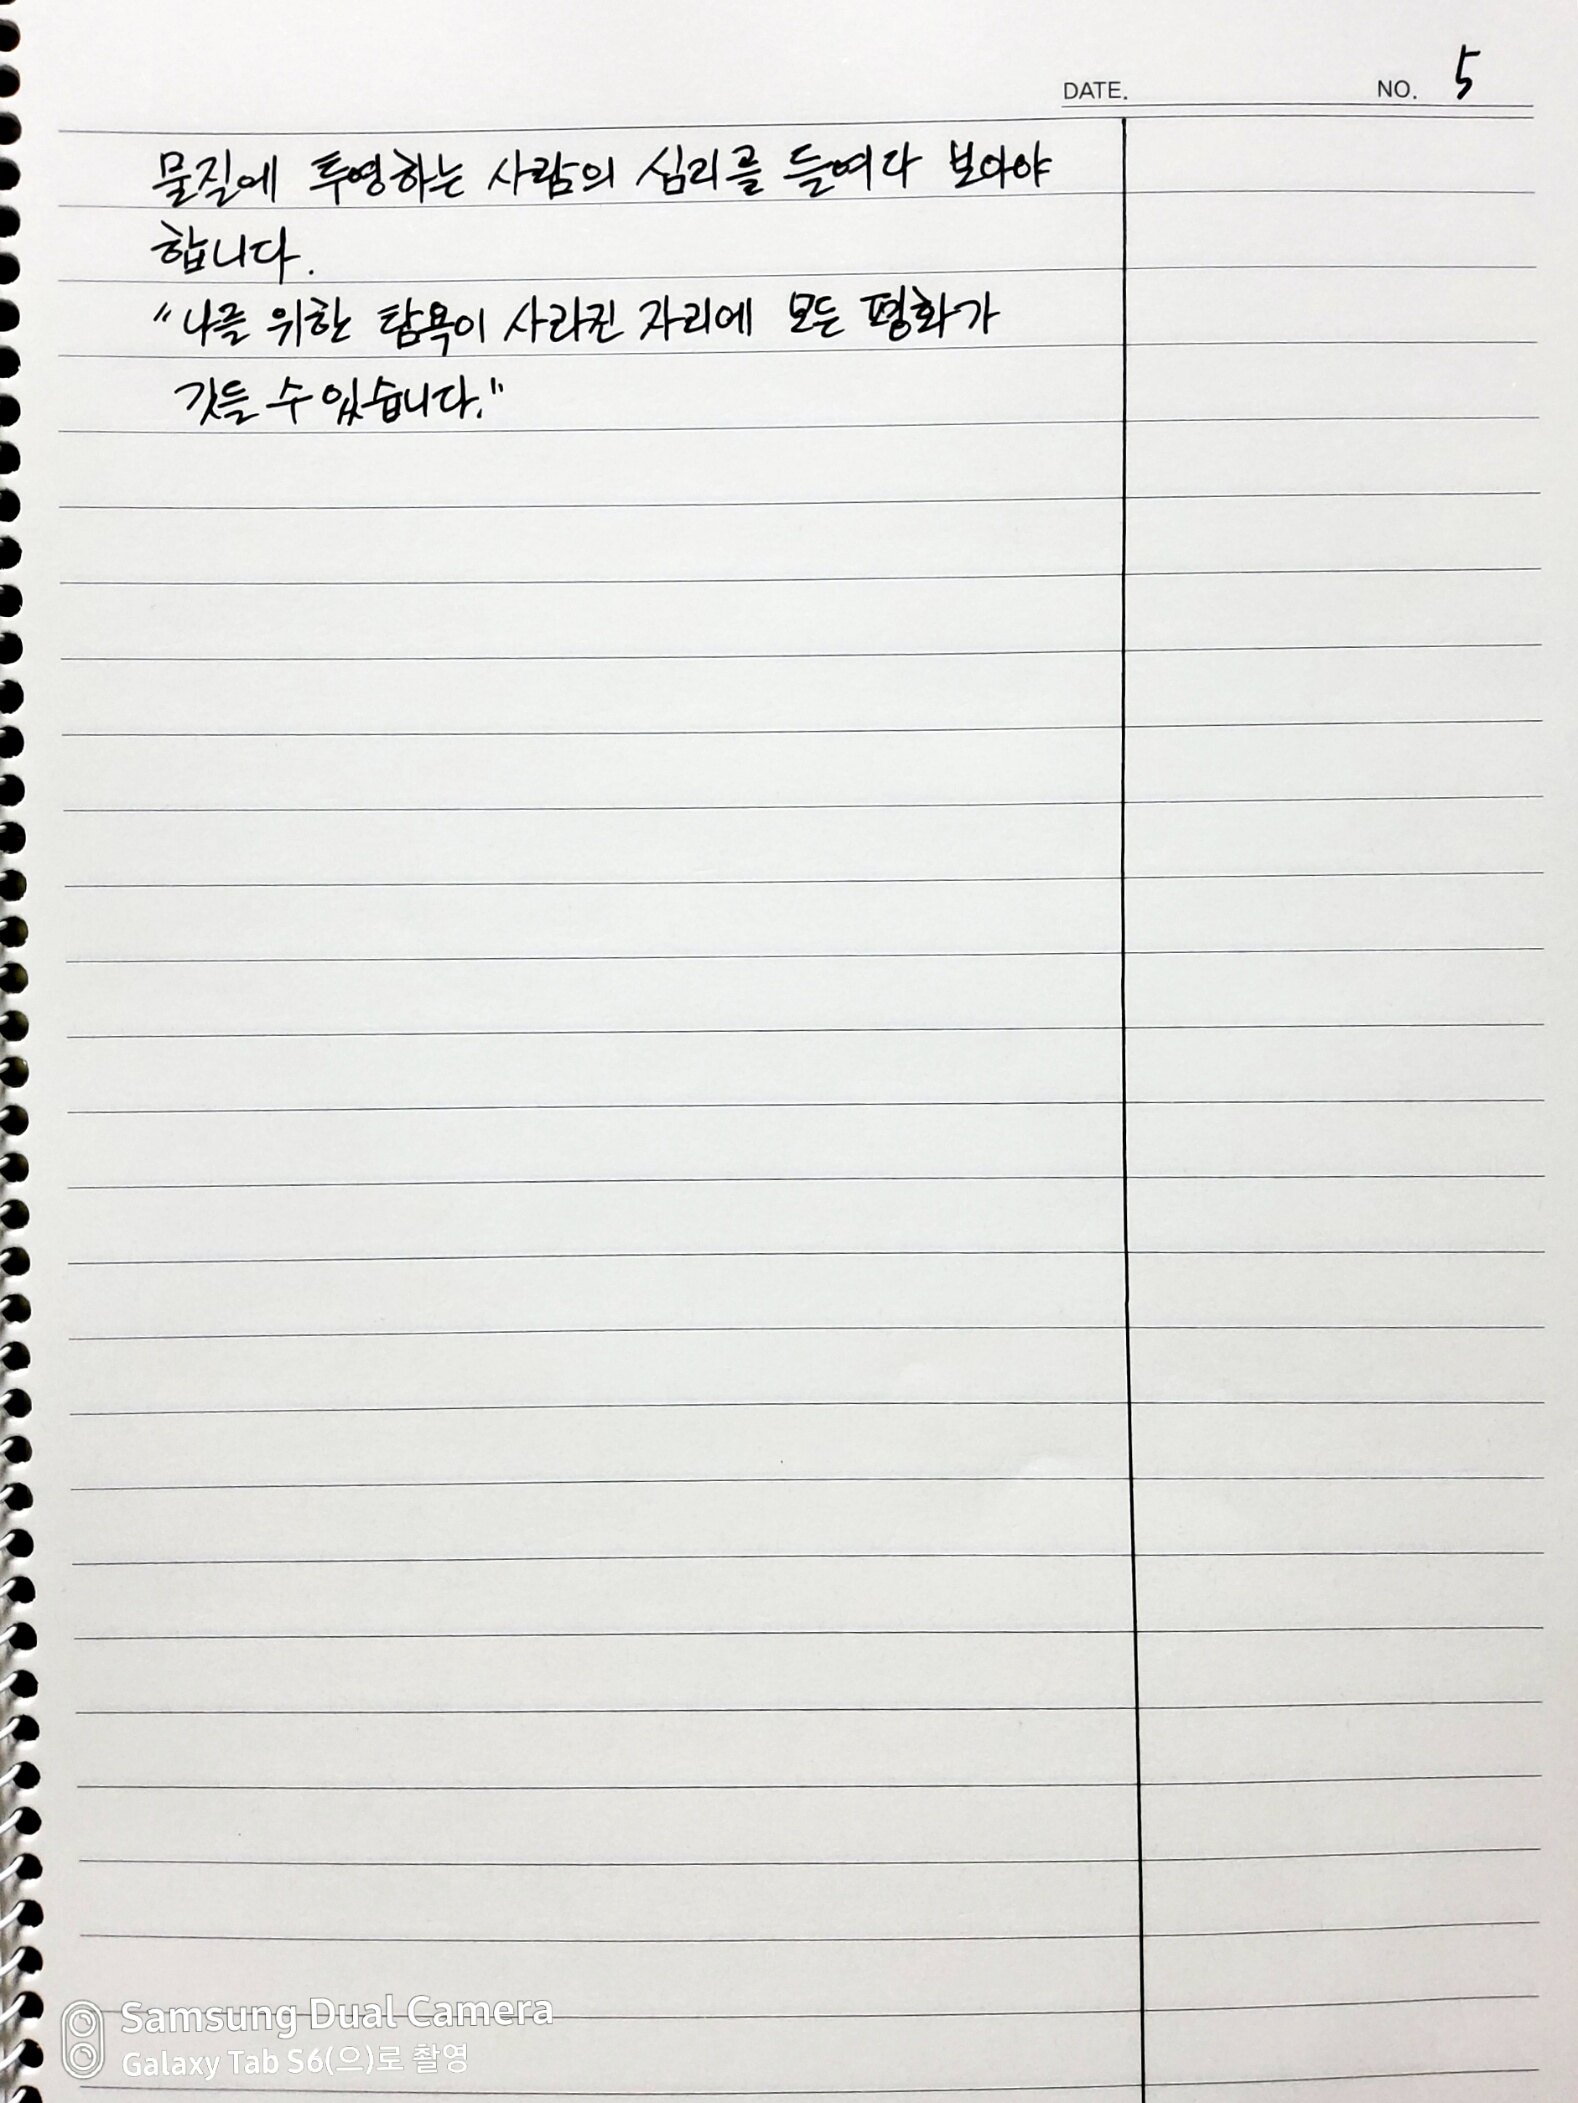 DATE. NO. 5
물질에 투영하는 사람의 심리를 들여다 보아야
합니다.
"나를 위한 탐욕이 사라진 자리에 모든 평화가
깃들 수 있습니다."
Samsung Dual Camera
Galaxy Tab S6(으)로 촬영